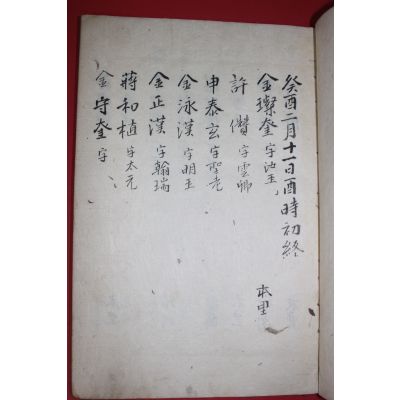 癸酉二月十一日酉時初終
本望
金璨奎 字汝玉
許儹 字雲卿
申泰玄 字聖老
金泳漢 字明玉
金正漢 字翰瑞
蔣和植 字太元
金守奎 字